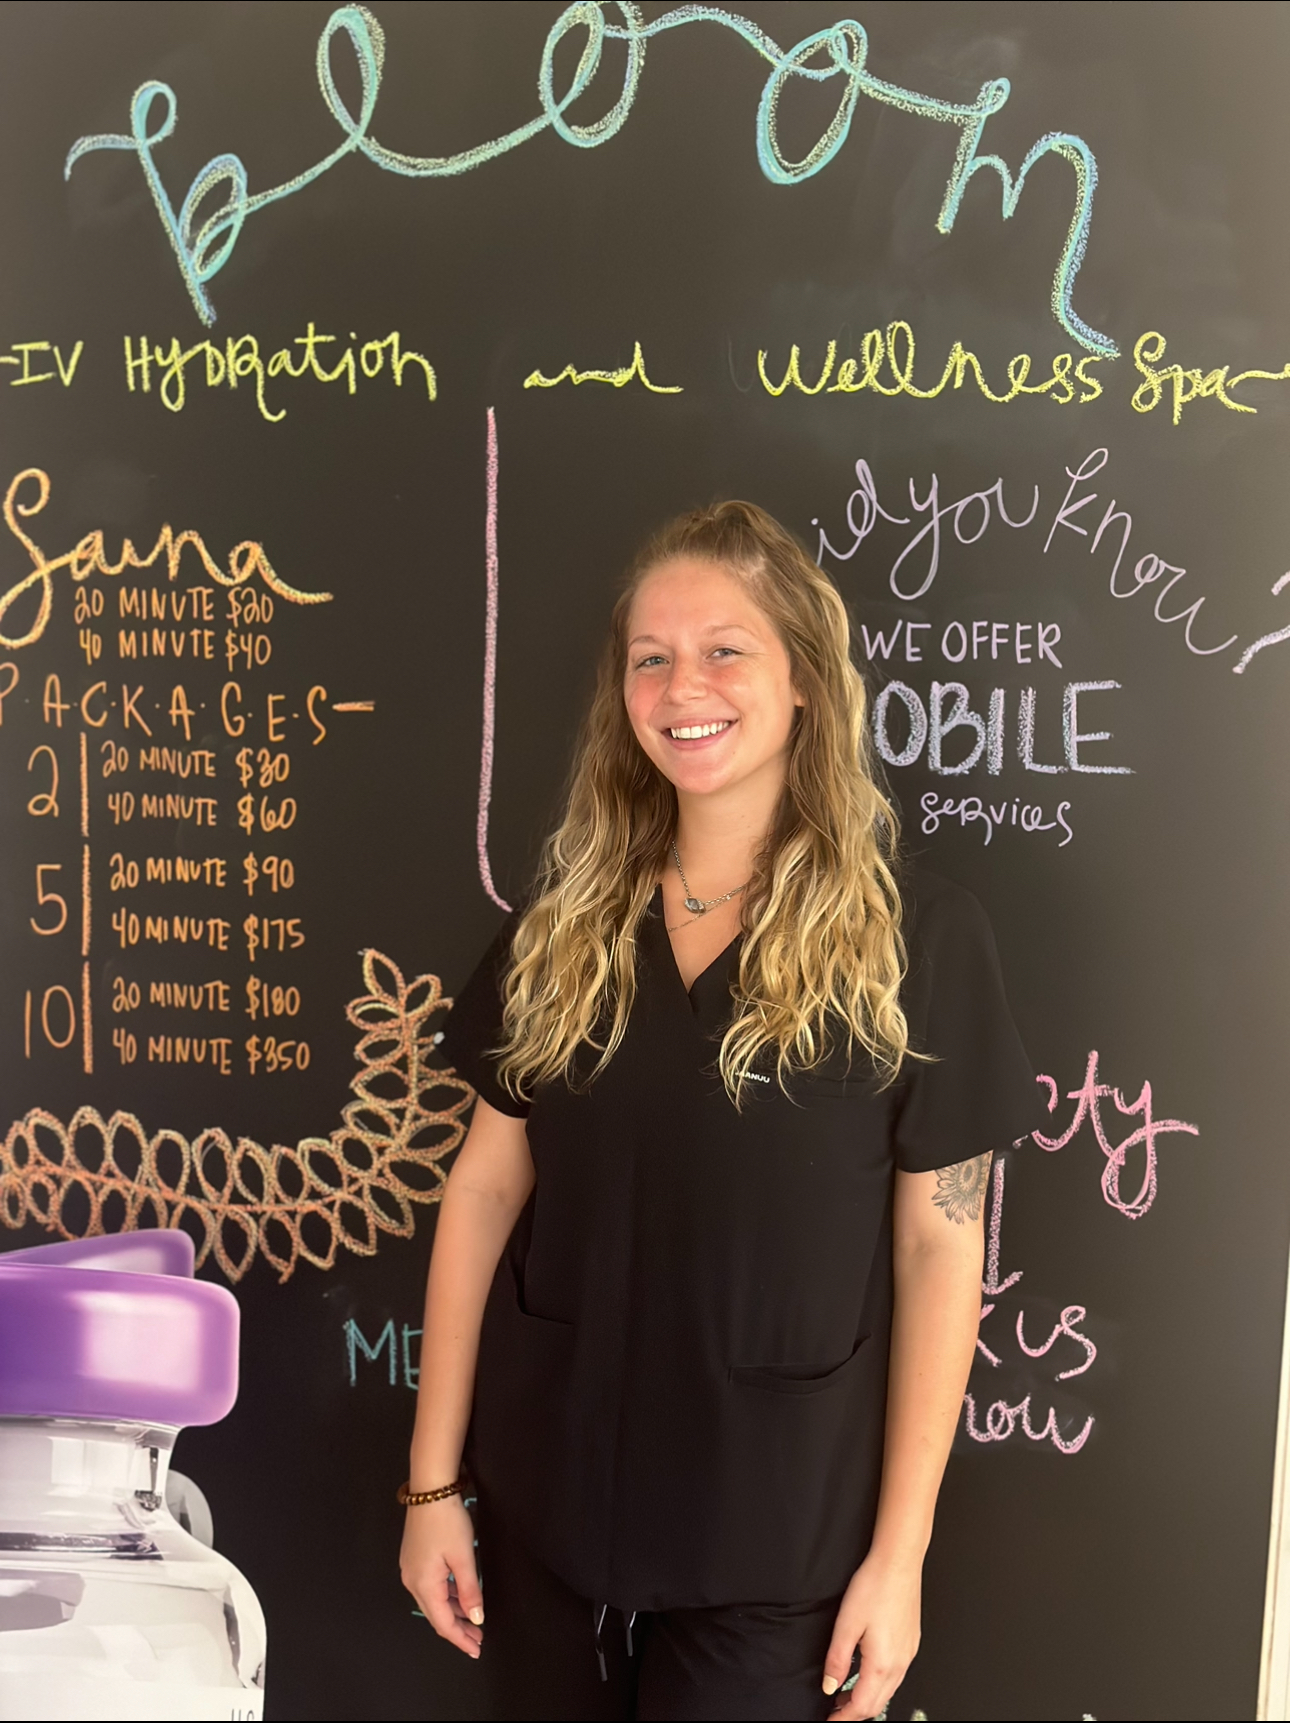 bloom
-IV HyDRation and Wellness Spa-
Sauna
20 MINUTE $20
40 MINUTE $40
P·A·C·K·A·G·E·S-
2 20 MINUTE $30
40 MINUTE $60
5 20 MINUTE $90
40 MINUTE $175
10 20 MINUTE $180
40 MINUTE $350
id you know?
WE OFFER
OBILE
services
JAANUU
ty
k us
now
ME